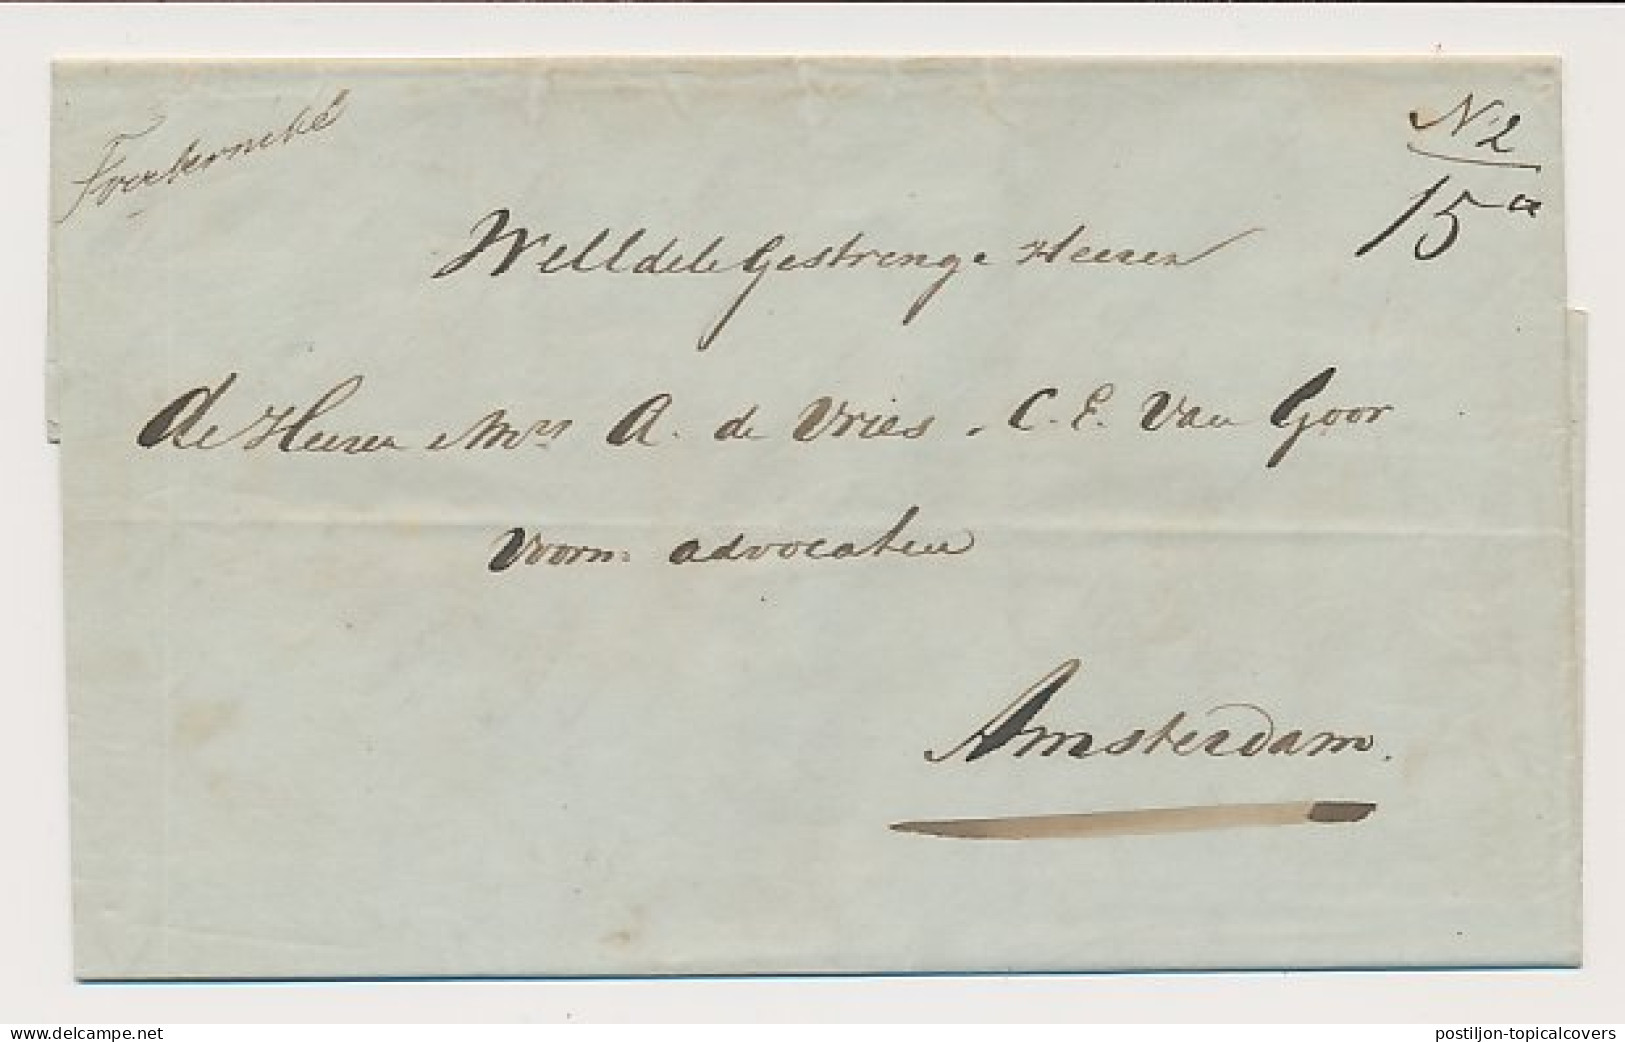 N 2
15 ct
WelEdele Gestrenge Heeren
de Heeren Mrs A. de Vries, C. E. Van Goor
Voorn: advocaten
Amsterdam.
www.delcampe.net
postiljon-topicalcovers